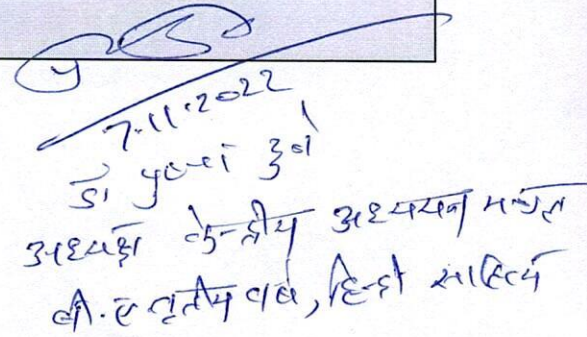 7.11.2022
डॉ. पुष्पा दुबे
अध्यक्ष केन्द्रीय अध्ययन मण्डल
बी.ए तृतीय वर्ष, हिन्दी साहित्य